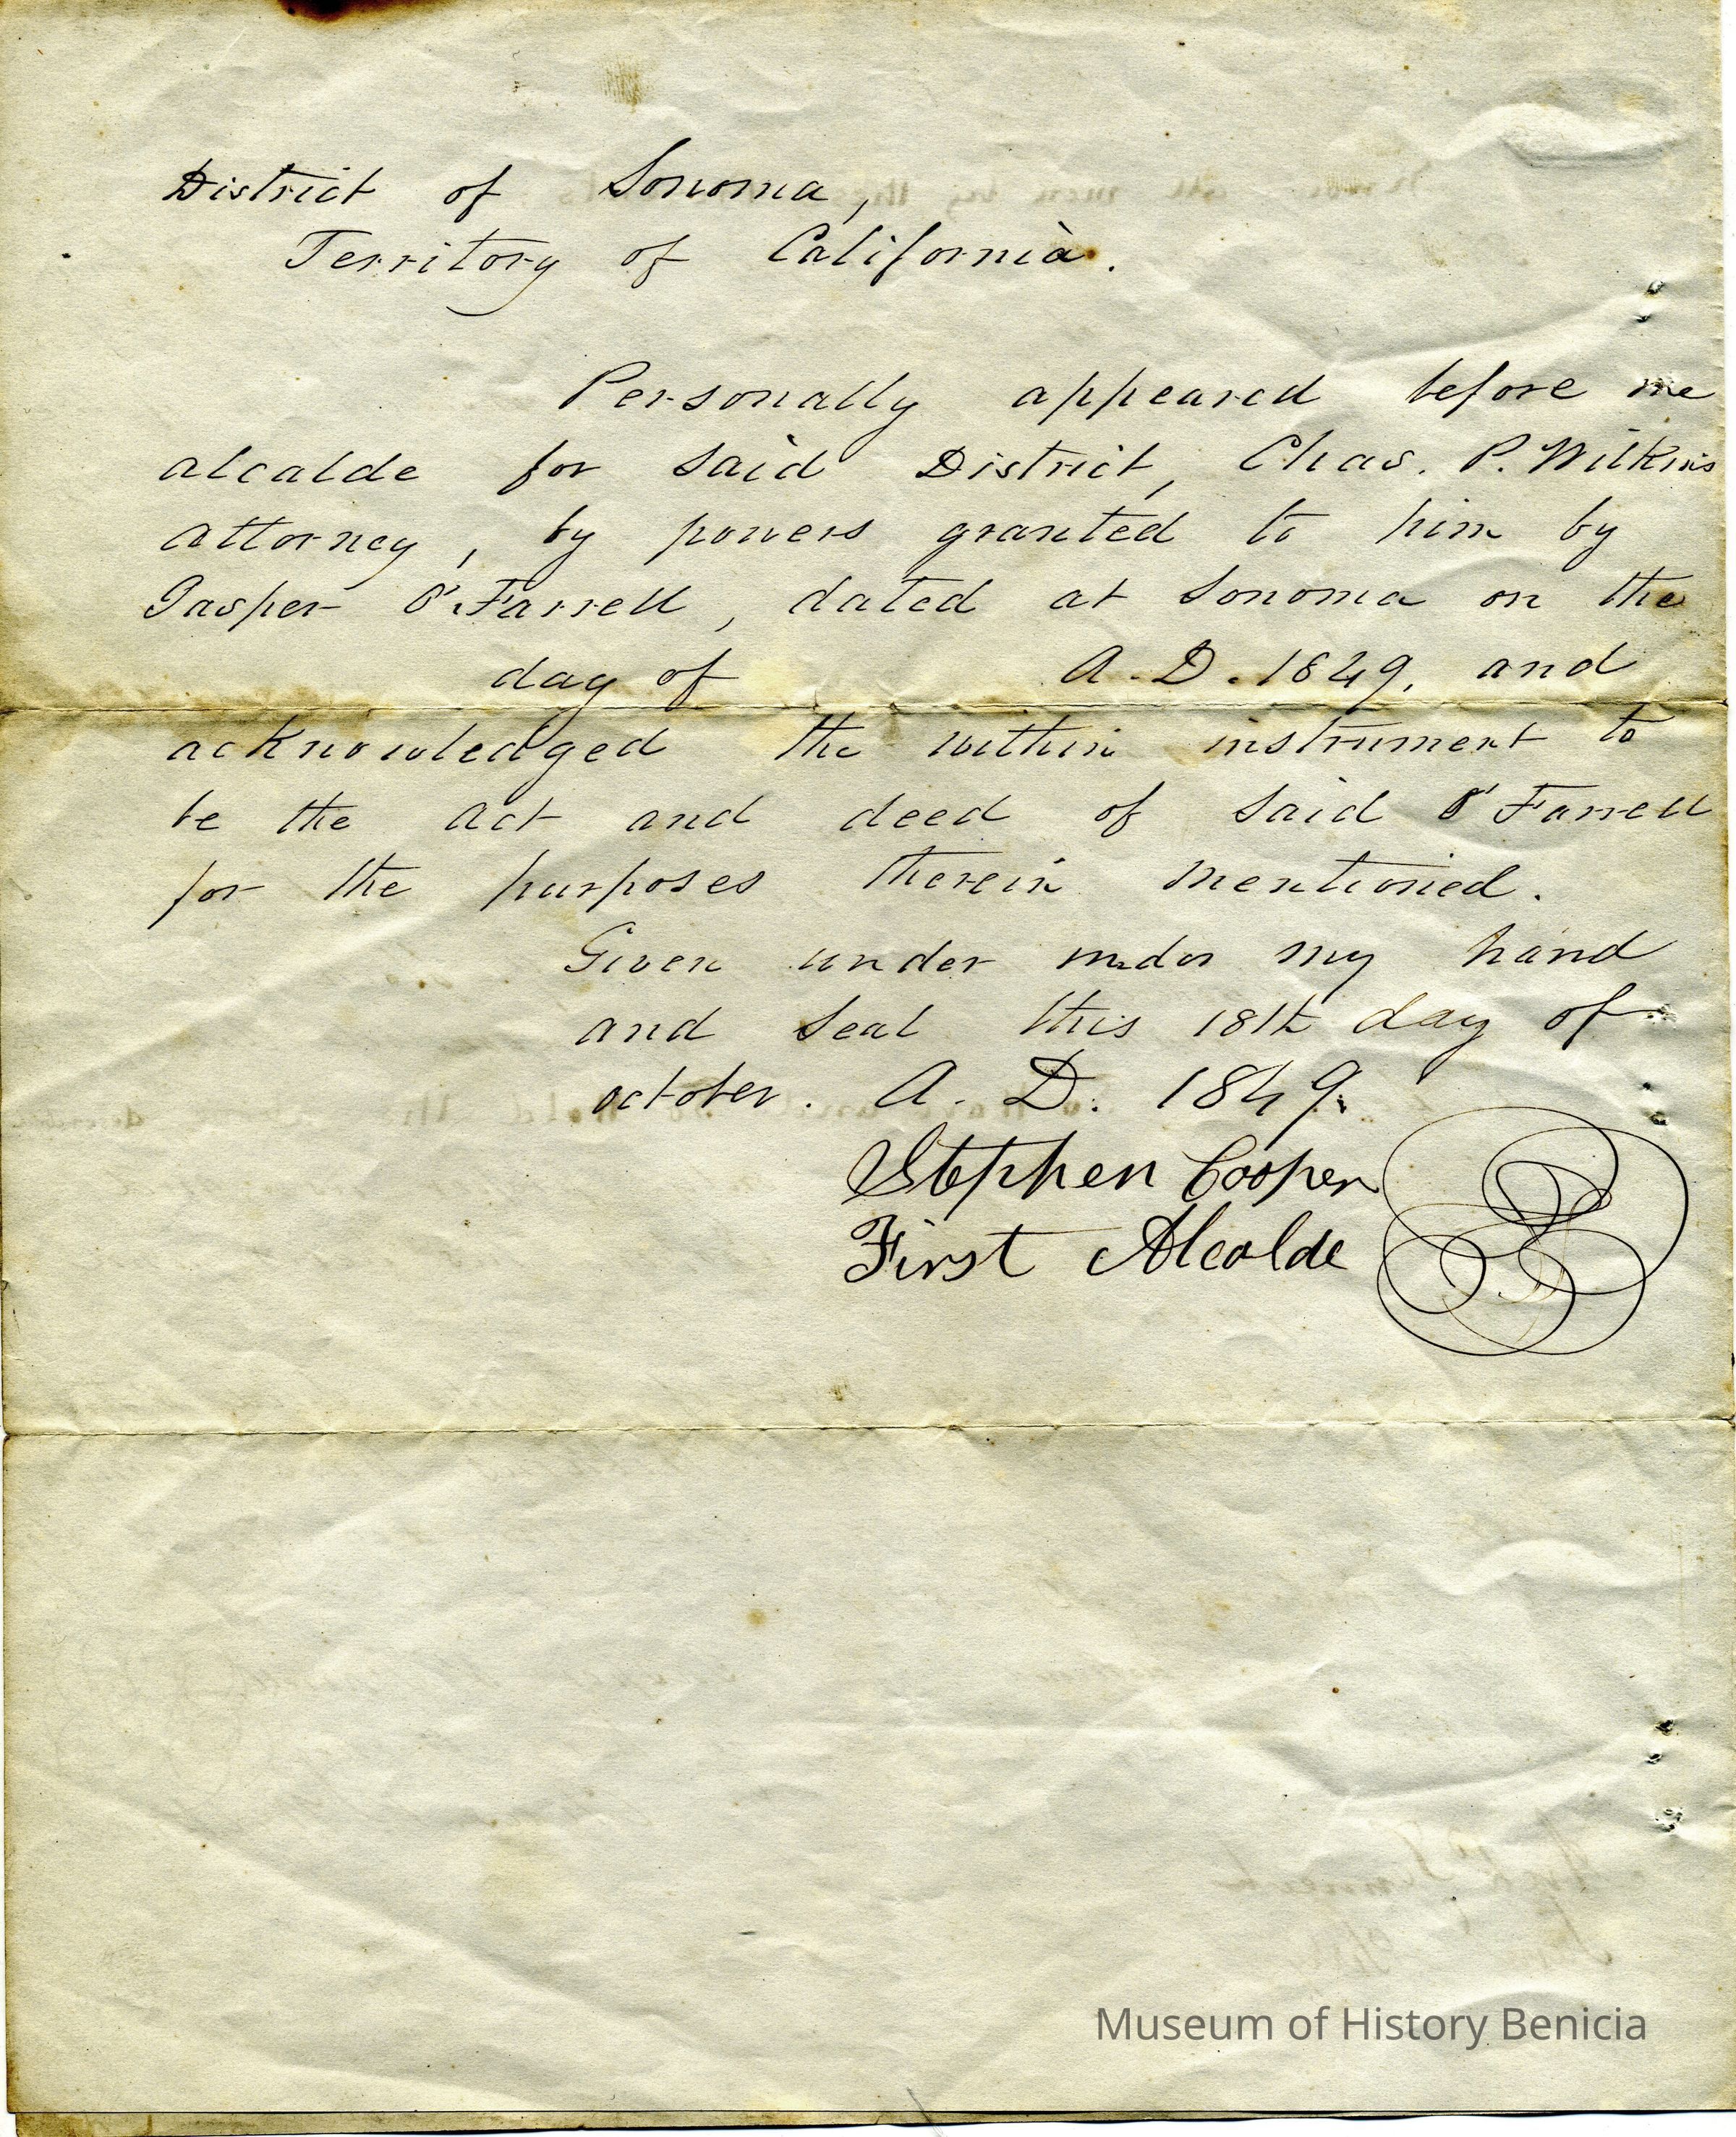 District of Sonoma,
Territory of California.
Personally appeared before me
alcalde for said District, Chas. P. Wilkins
attorney, by powers granted to him by
Jasper O'Farrell, dated at Sonoma on the
day of A. D. 1849, and
acknowledged the within instrument to
be the act and deed of said O'Farrell
for the purposes therein mentioned.
Given under under my hand
and seal this 18th day of
october. A. D. 1849.
Stephen Cooper
First Alcalde
Museum of History Benicia